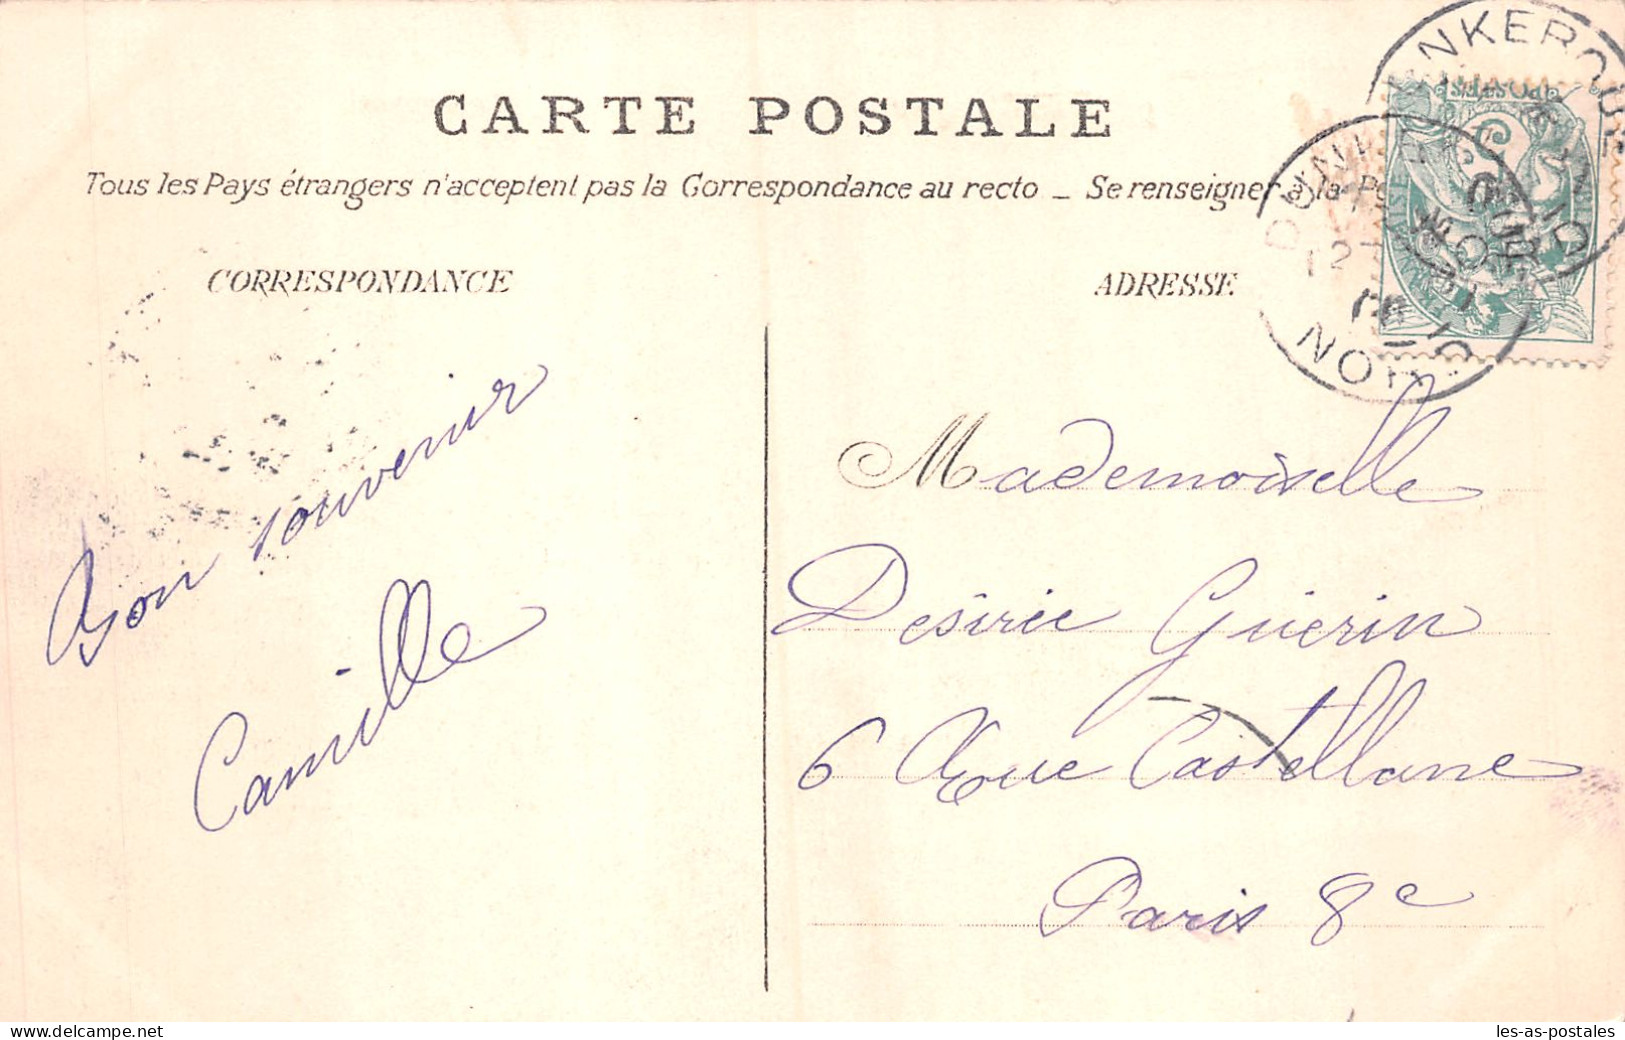 CARTE POSTALE
Tous les Pays étrangers n'acceptent pas la Correspondance au recto _ Se renseigner à la
CORRESPONDANCE
ADRESSE
DUNKERQUE
NORD
Bon souvenir
Camille
Mademoiselle
Desirée Guérin
6 Rue Castellane
Paris 8e
www.delcampe.net
les-as-postales